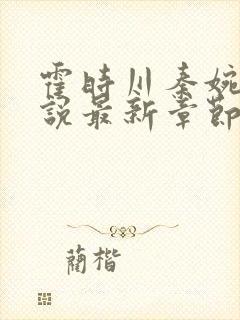 霍時川秦婉
說最新章節
蘭楷